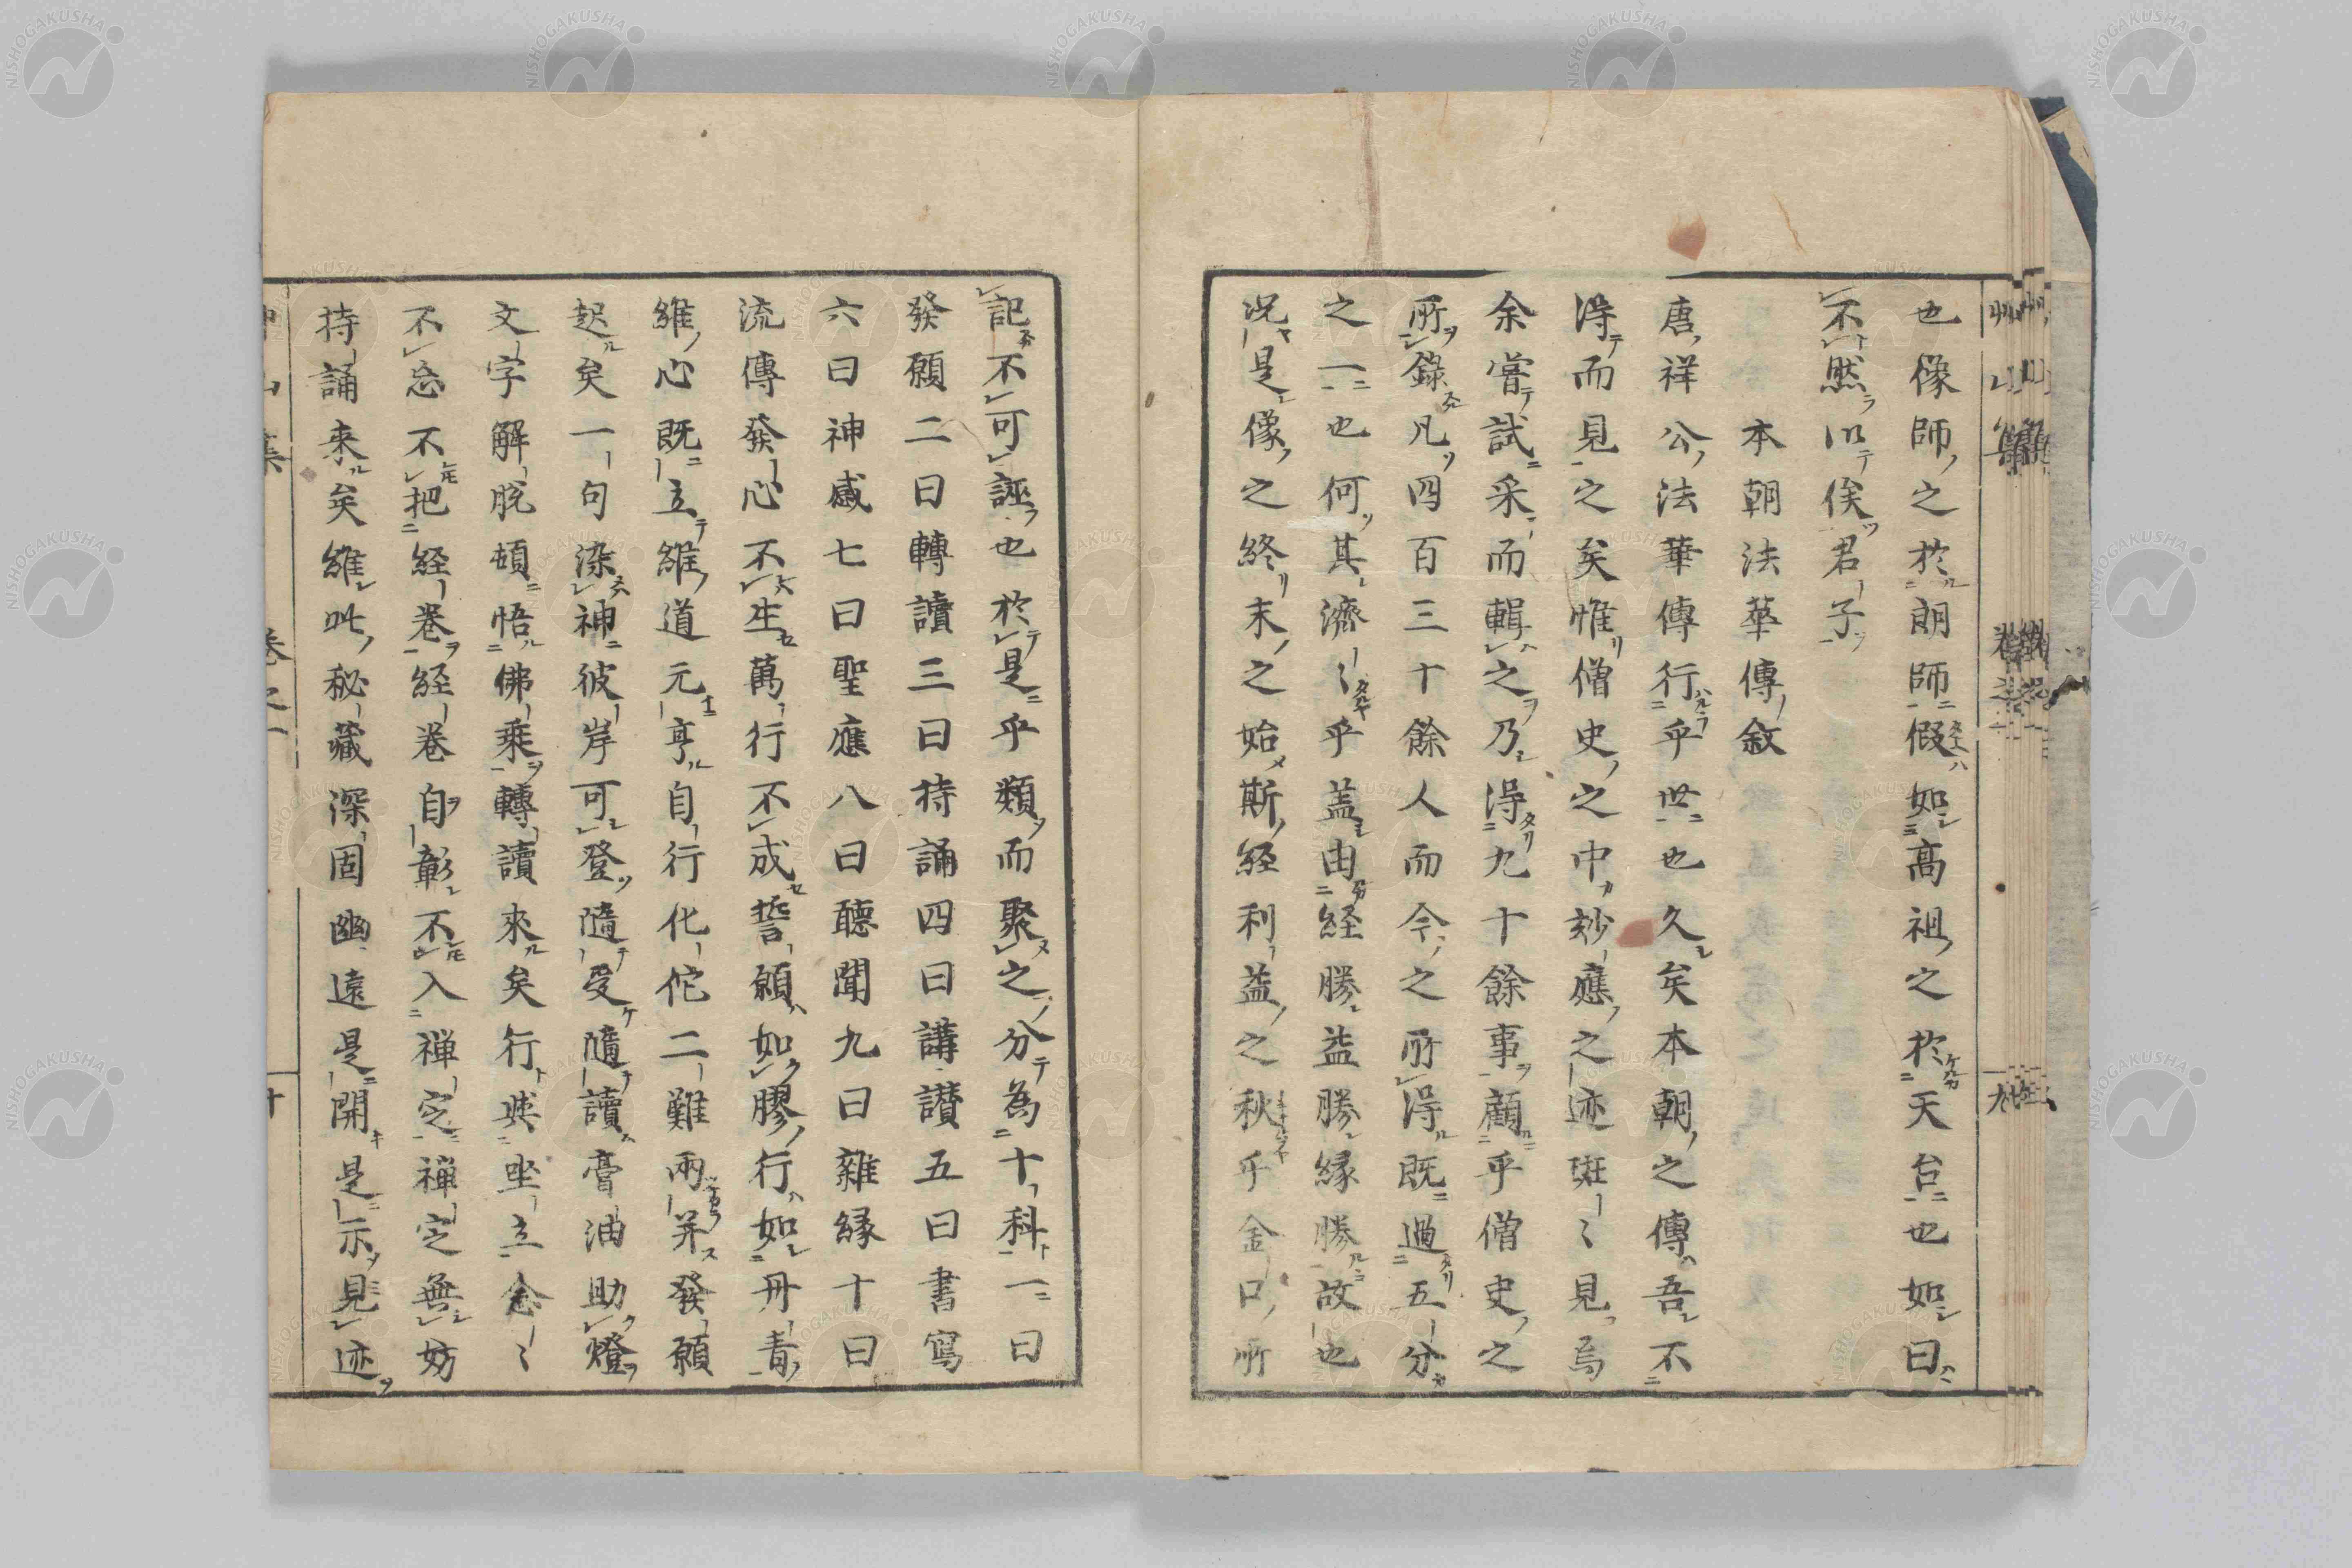 也像師之於朗師假如高祖之於天台也如曰
不然以俟君子
本朝法華傳敘
唐祥公法華傳行乎世也久矣本朝之傳吾不
得而見之矣惟僧史之中妙應之迹斑〻見焉
余嘗試采而輯之乃得九十餘事顧乎僧史之
所錄凡四百三十餘人而今之所得既過五分
之一也何其濟〻乎蓋由経勝益勝縁勝故也
況是像之終末之始斯経利益之秋乎金口所
記不可誣也於是乎類而聚之分為十科一曰
發願二曰轉讀三曰持誦四曰講讃五曰書寫
六曰神感七曰聖應八曰聽聞九曰雜縁十曰
流傳發心不生萬行不成誓願如膠行如丹青
維心既立維道元亨自行化佗二難兩并發願
起矣一句染神彼岸可登隨受隨讀膏油助燈
文字解脱頓悟佛乗轉讀來矣行與坐立念〻
不忘不把経卷経卷自彰不入禅定禅定無妨
持誦来矣維此秘藏深固幽遠是開是示見迹